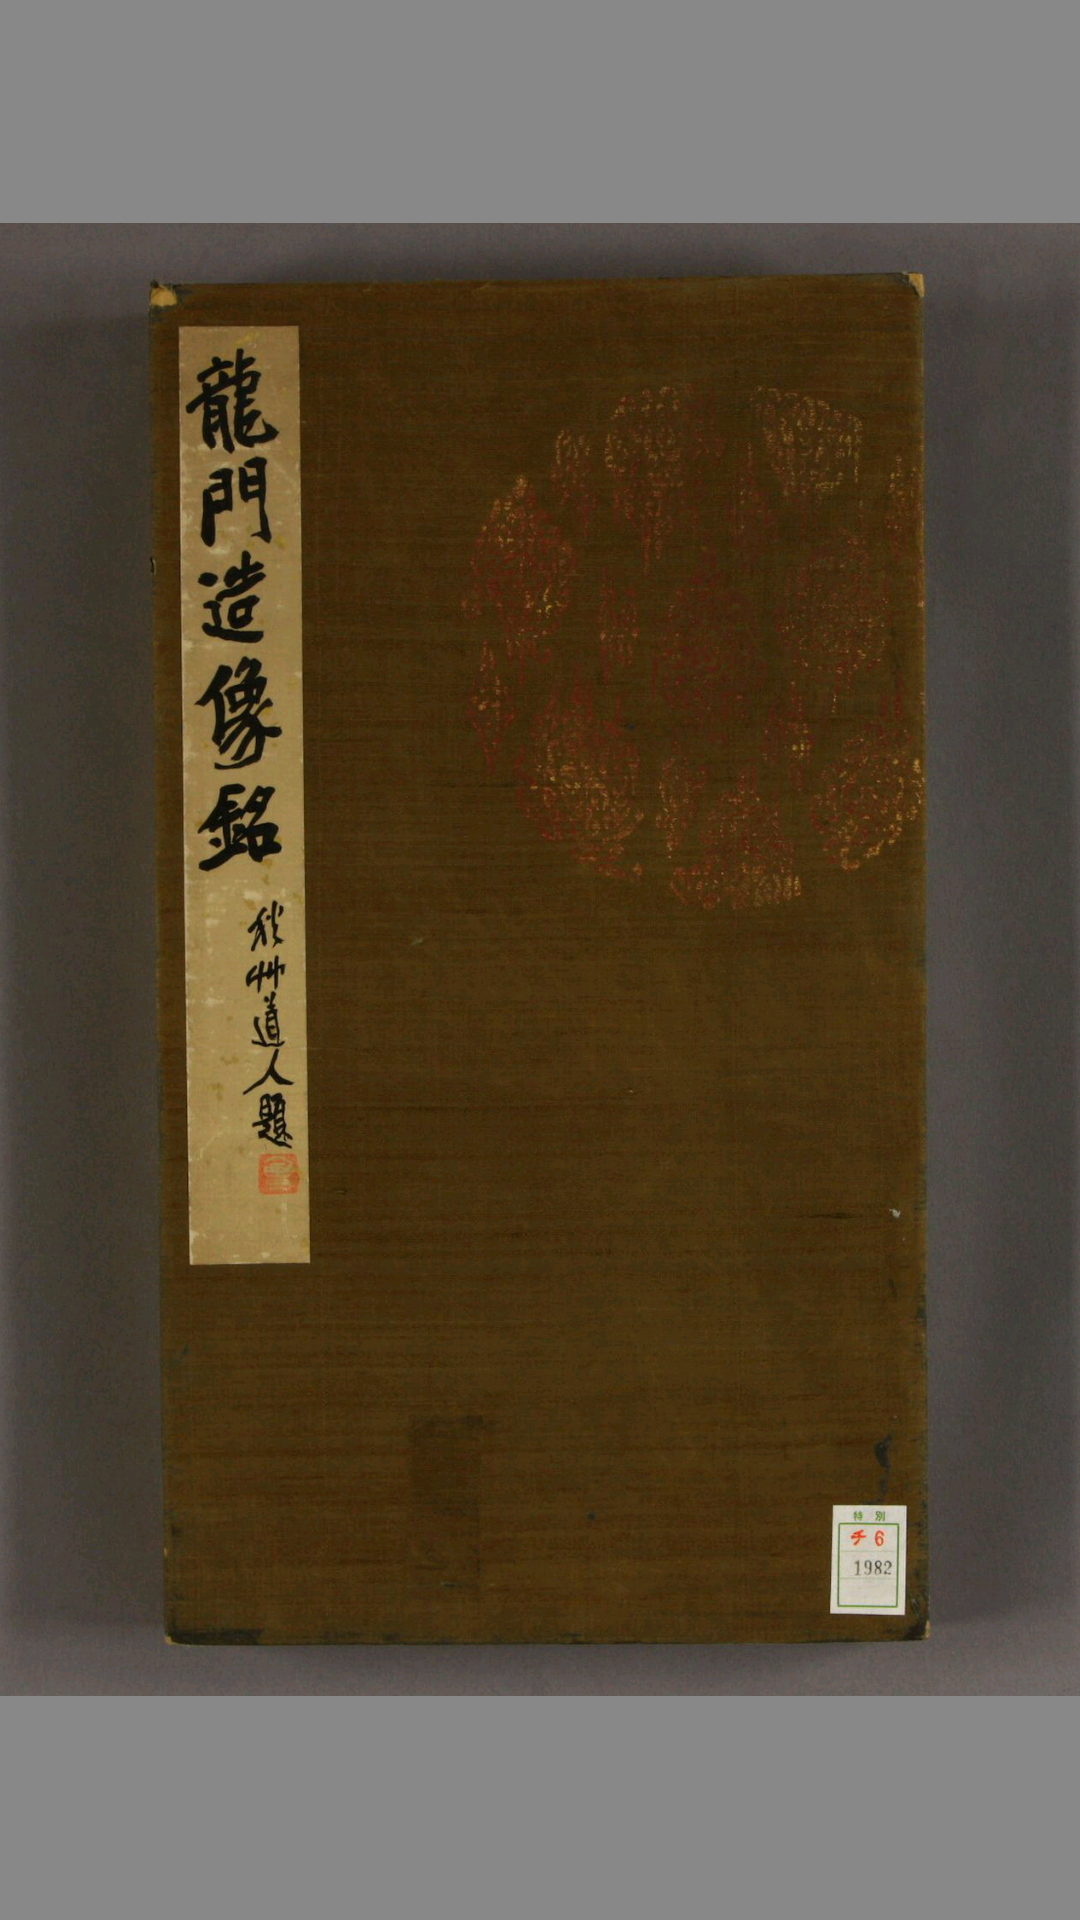 龍門造像銘
秋艸道人題
特別
チ 6
1982